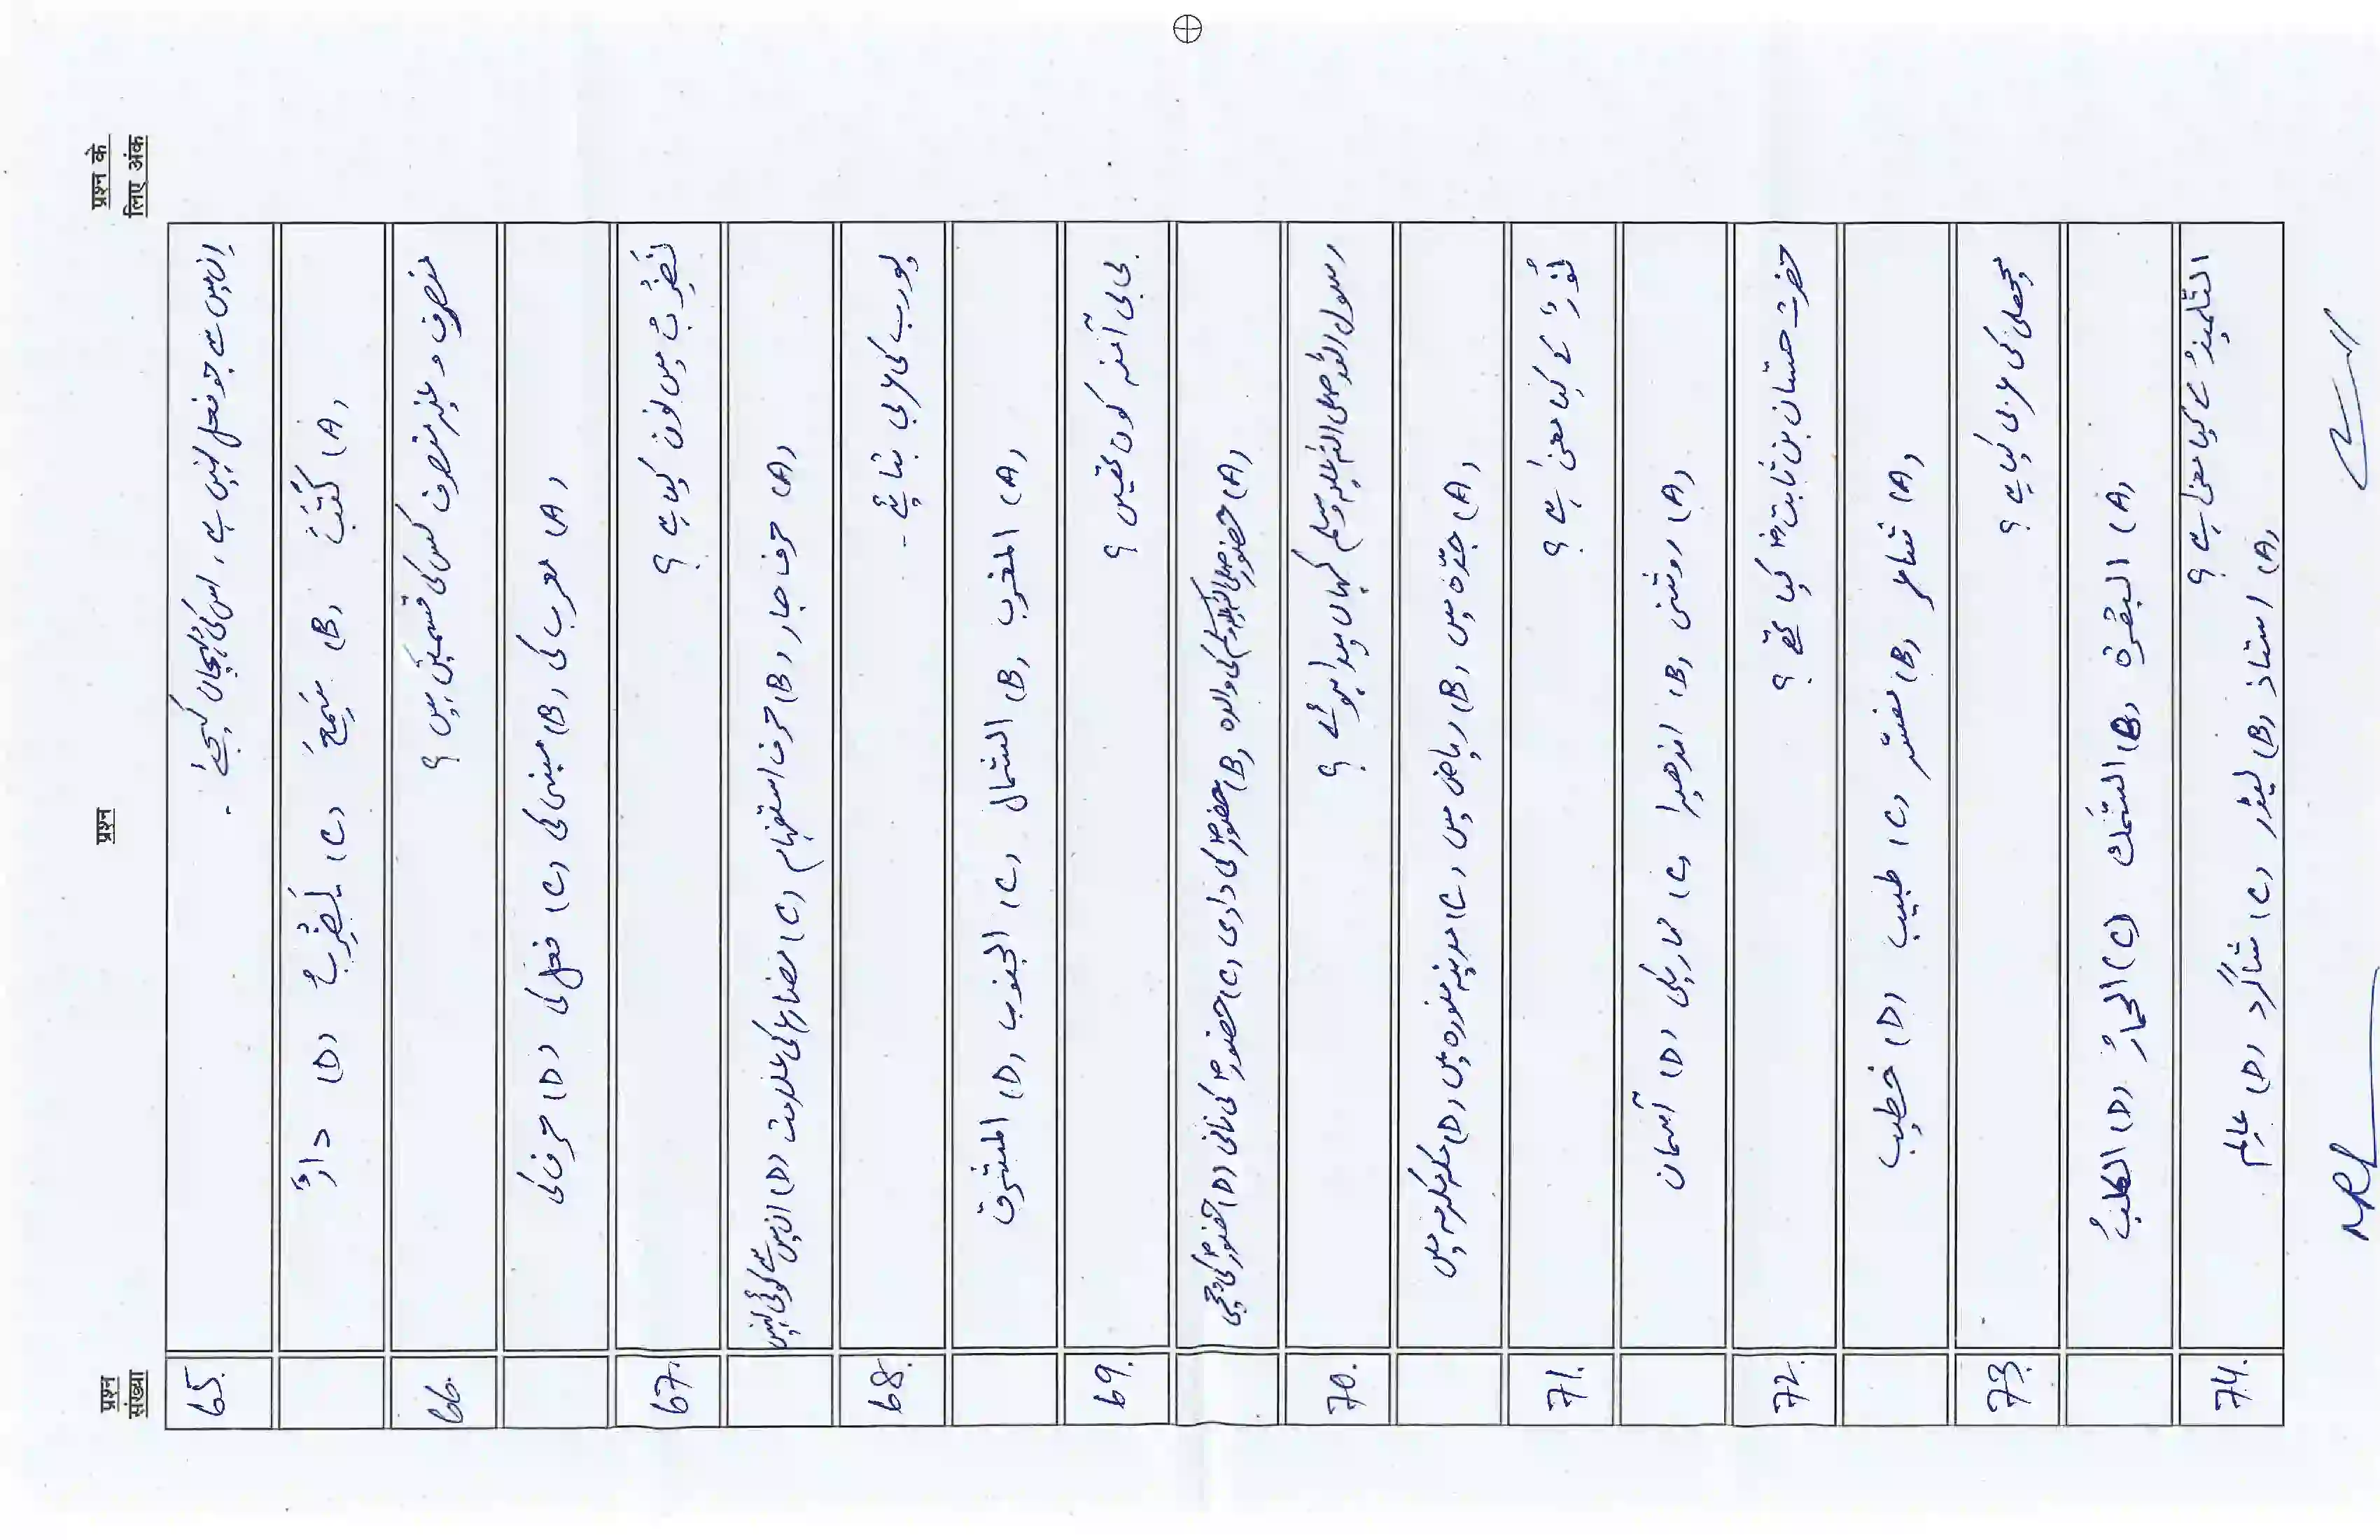 प्रश्न संख्या
प्रश्न
प्रश्न के लिए अंक
65. ان میں سے جو فعل نہیں ہے، اس کی پہچان کیجئے۔
(A) كَتَبَ (B) سَمِعَ (C) يَضْرِبُ (D) دارٌ
66. منصرف و غیر منصرف کس کی قسمیں ہیں ؟
(A) معرب کی (B) مبنی کی (C) فعل کی (D) حرف کی
67. نَضْرِبُ میں نون کیا ہے ؟
(A) حرف جار (B) حرف استفہام (C) مضارع کی علامت (D) ان میں سے کوئی نہیں
68. پورب کی عربی بتائیے۔
(A) المغرب (B) الشمال (C) الجنوب (D) المشرق
69. بی بی آمنہ کون تھیں ؟
(A) حضور صلی اللہ علیہ وسلم کی والدہ (B) حضورؐ کی دادی (C) حضورؐ کی نانی (D) حضورؐ کی چچی
70. رسول اللہ صلی اللہ علیہ وسلم کہاں پیدا ہوئے ؟
(A) جدّہ میں (B) ریاض میں (C) مدینہ منورہ میں (D) مکہ مکرمہ میں
71. نُوْرٌ کے کیا معنیٰ ہے ؟
(A) روشنی (B) اندھیرا (C) تاریکی (D) آسمان
72. حضرت حسّان بن ثابتؓ کیا تھے ؟
(A) شاعر (B) مفسّر (C) طبیب (D) خطیب
73. مچھلی کی عربی کیا ہے ؟
(A) البقرہ (B) السَّمَك (C) الحمارُ (D) الكلبُ
74. التِّلميذُ کے کیا معنیٰ ہے ؟
(A) استاذ (B) لیڈر (C) شاگرد (D) عالِم